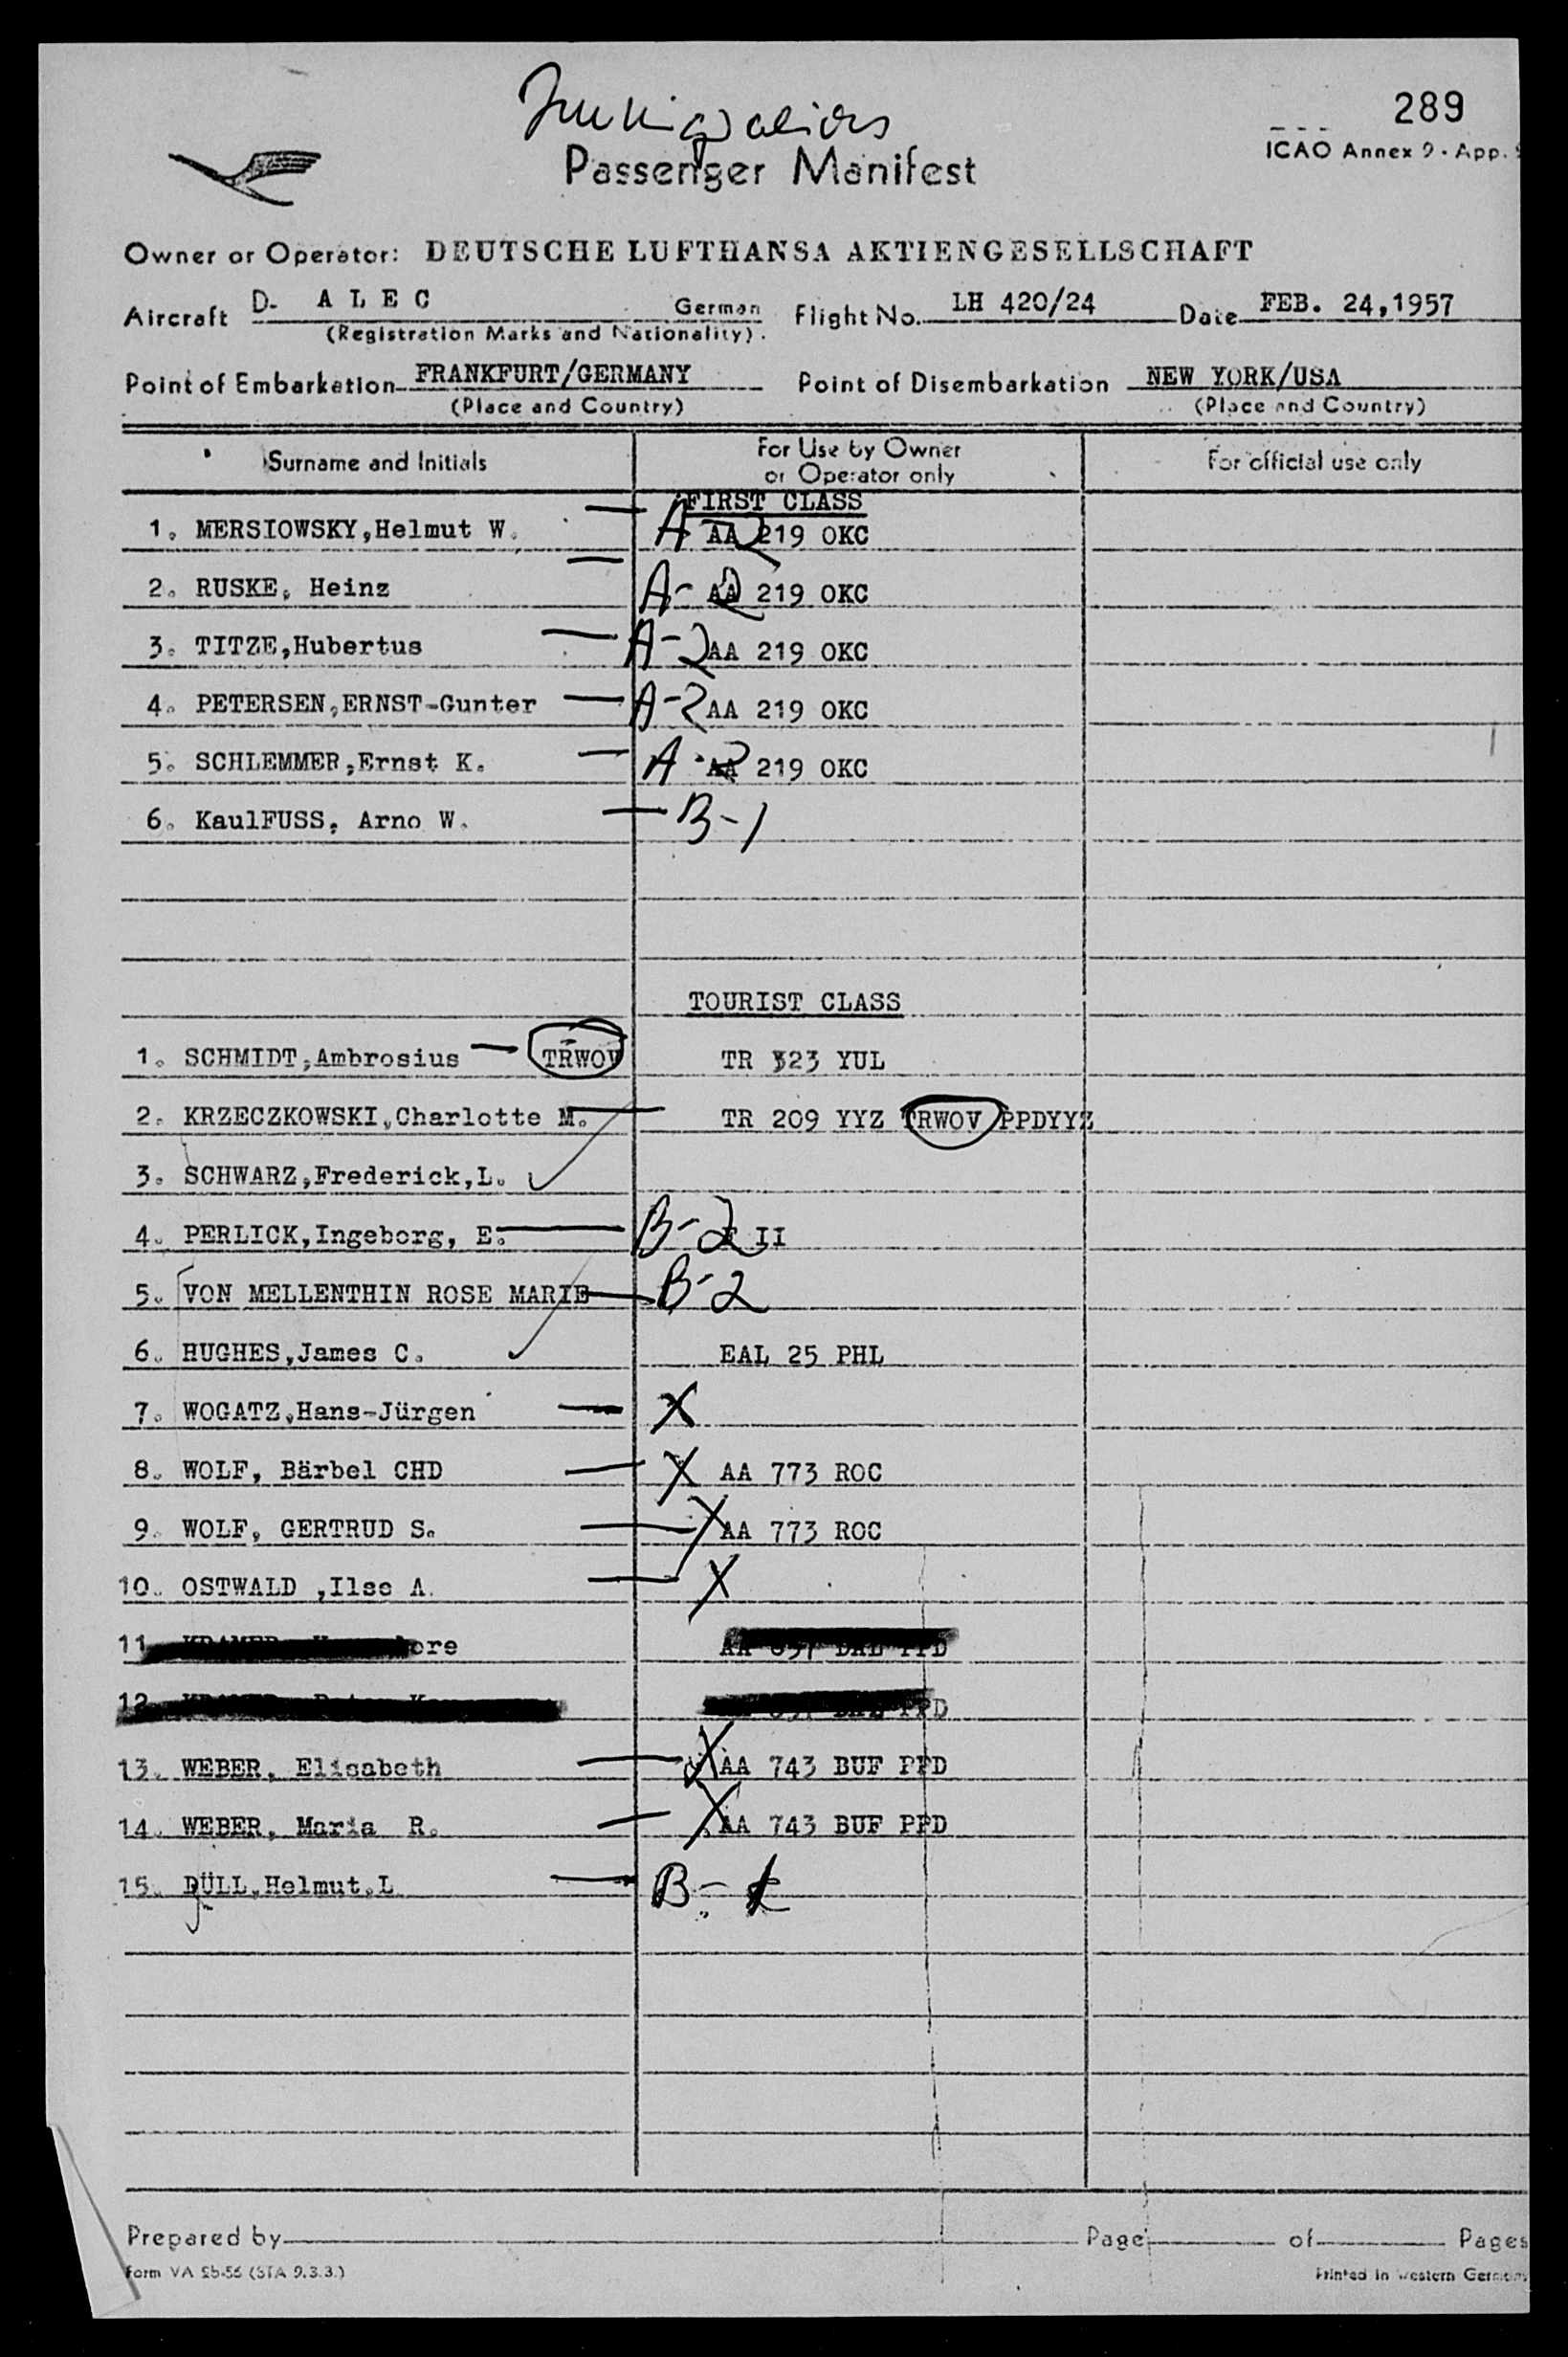 Immigration
289
Passenger Manifest
ICAO Annex 9 - App.
Owner or Operator: DEUTSCHE LUFTHANSA AKTIENGESELLSCHAFT
Aircraft D- A L E C German Flight No. LH 420/24 Date FEB. 24,1957
(Registration Marks and Nationality).
Point of Embarkation FRANKFURT/GERMANY Point of Disembarkation NEW YORK/USA
(Place and Country) (Place and Country)
Surname and Initials For Use by Owner or Operator only For official use only
FIRST CLASS
1. MERSIOWSKY,Helmut W. A-2 AA 219 OKC
2. RUSKE, Heinz A-2 AA 219 OKC
3. TITZE,Hubertus A-2 AA 219 OKC
4. PETERSEN,ERNST-Gunter A-2 AA 219 OKC
5. SCHLEMMER,Ernst K. A-2 AA 219 OKC
6. KaulFUSS, Arno W. B-1
TOURIST CLASS
1. SCHMIDT,Ambrosius TRWOV TR 323 YUL
2. KRZECZKOWSKI,Charlotte M. TR 209 YYZ TRWOV PPDYYZ
3. SCHWARZ,Frederick,L.
4. PERLICK,Ingeborg, E. B-2 II
5. VON MELLENTHIN ROSE MARIE B-2
6. HUGHES,James C. EAL 25 PHL
7. WOGATZ,Hans-Jürgen X
8. WOLF, Bärbel CHD X AA 773 ROC
9. WOLF, GERTRUD S. X AA 773 ROC
10. OSTWALD ,Ilse A. X
11 ore PPD
12 PPD
13. WEBER, Elisabeth X AA 743 BUF PPD
14. WEBER, Maria R. X AA 743 BUF PPD
15. DÜLL,Helmut.L B-
Prepared by Page of Pages
Form VA 2b-56 (STA 9.3.3.) Printed in Western Germany